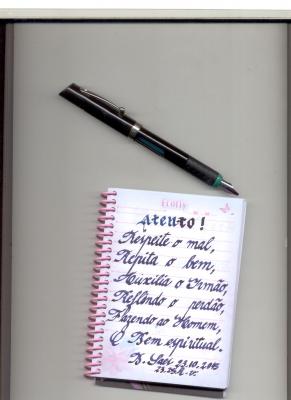 Ecolly
Atento!
Respeite o mal,
Repita o bem,
Auxilia o Irmão,
Refletindo o perdão,
Fazendo ao Homem,
O Bem espiritual.
23.10.2015